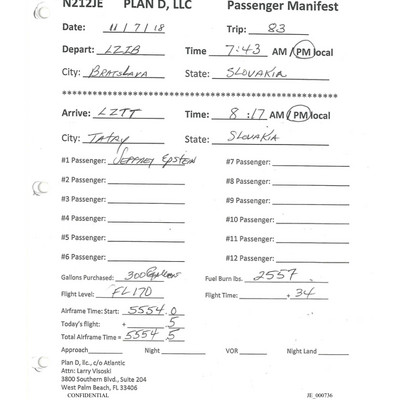 N212JE PLAN D, LLC Passenger Manifest
Date: 11/7/18 Trip: 83
Depart: LZIB Time 7:43 AM/PM local
City: BRATSLAVA State: SLOVAKIA
************************************************************
Arrive: LZTT Time: 8:17 AM/PM local
City: TATRY State: SLOVAKIA
#1 Passenger: JEFFREY EPSTEIN #7 Passenger:
#2 Passenger: #8 Passenger:
#3 Passenger: #9 Passenger:
#4 Passenger: #10 Passenger:
#5 Passenger: #11 Passenger:
#6 Passenger: #12 Passenger:
Gallons Purchased: 300 Gallons Fuel Burn lbs. 2557
Flight Level: FL170 Flight Time: .34
Airframe Time: Start: 5554.0
Today's flight: + .5
Total Airframe Time = 5554.5
Approach Night VOR Night Land
Plan D, llc, c/o Atlantic
Attn: Larry Visoski
3800 Southern Blvd., Suite 204
West Palm Beach, FL 33406
CONFIDENTIAL JE_000736